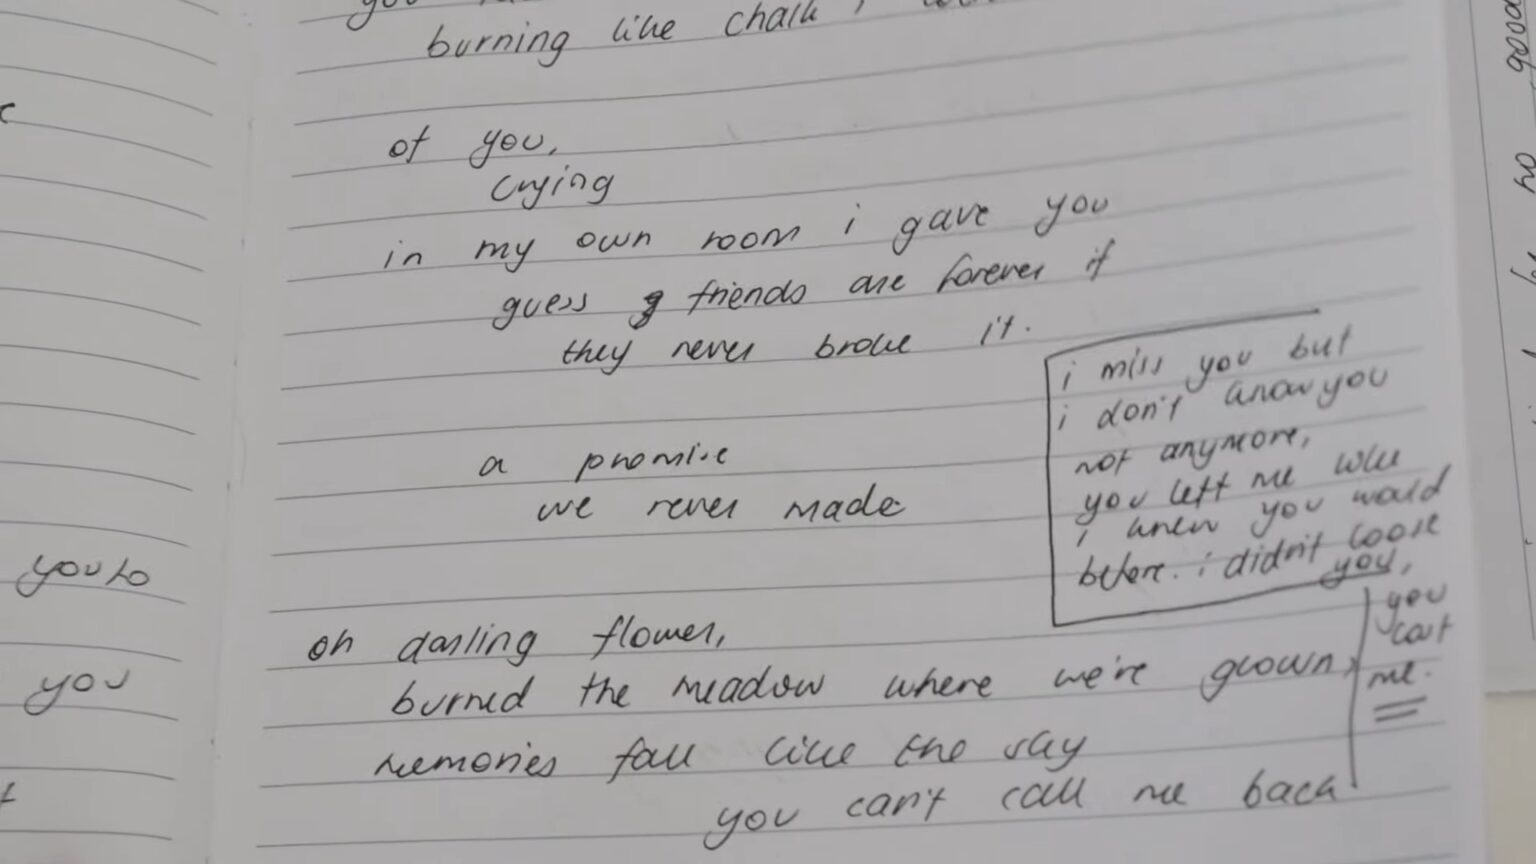 burning like chalk
of you,
crying
in my own room i gave you
guess friends are forever if
they never broke it.
a promise
we never made
i miss you but
i don't know you
not anymore,
you left me like
i knew you would
before. i didn't loose
you,
you
lost
me.
oh darling flower,
burned the meadow where we're grown,
memories fall like the sky
you can't call me back
you to
you
good
no